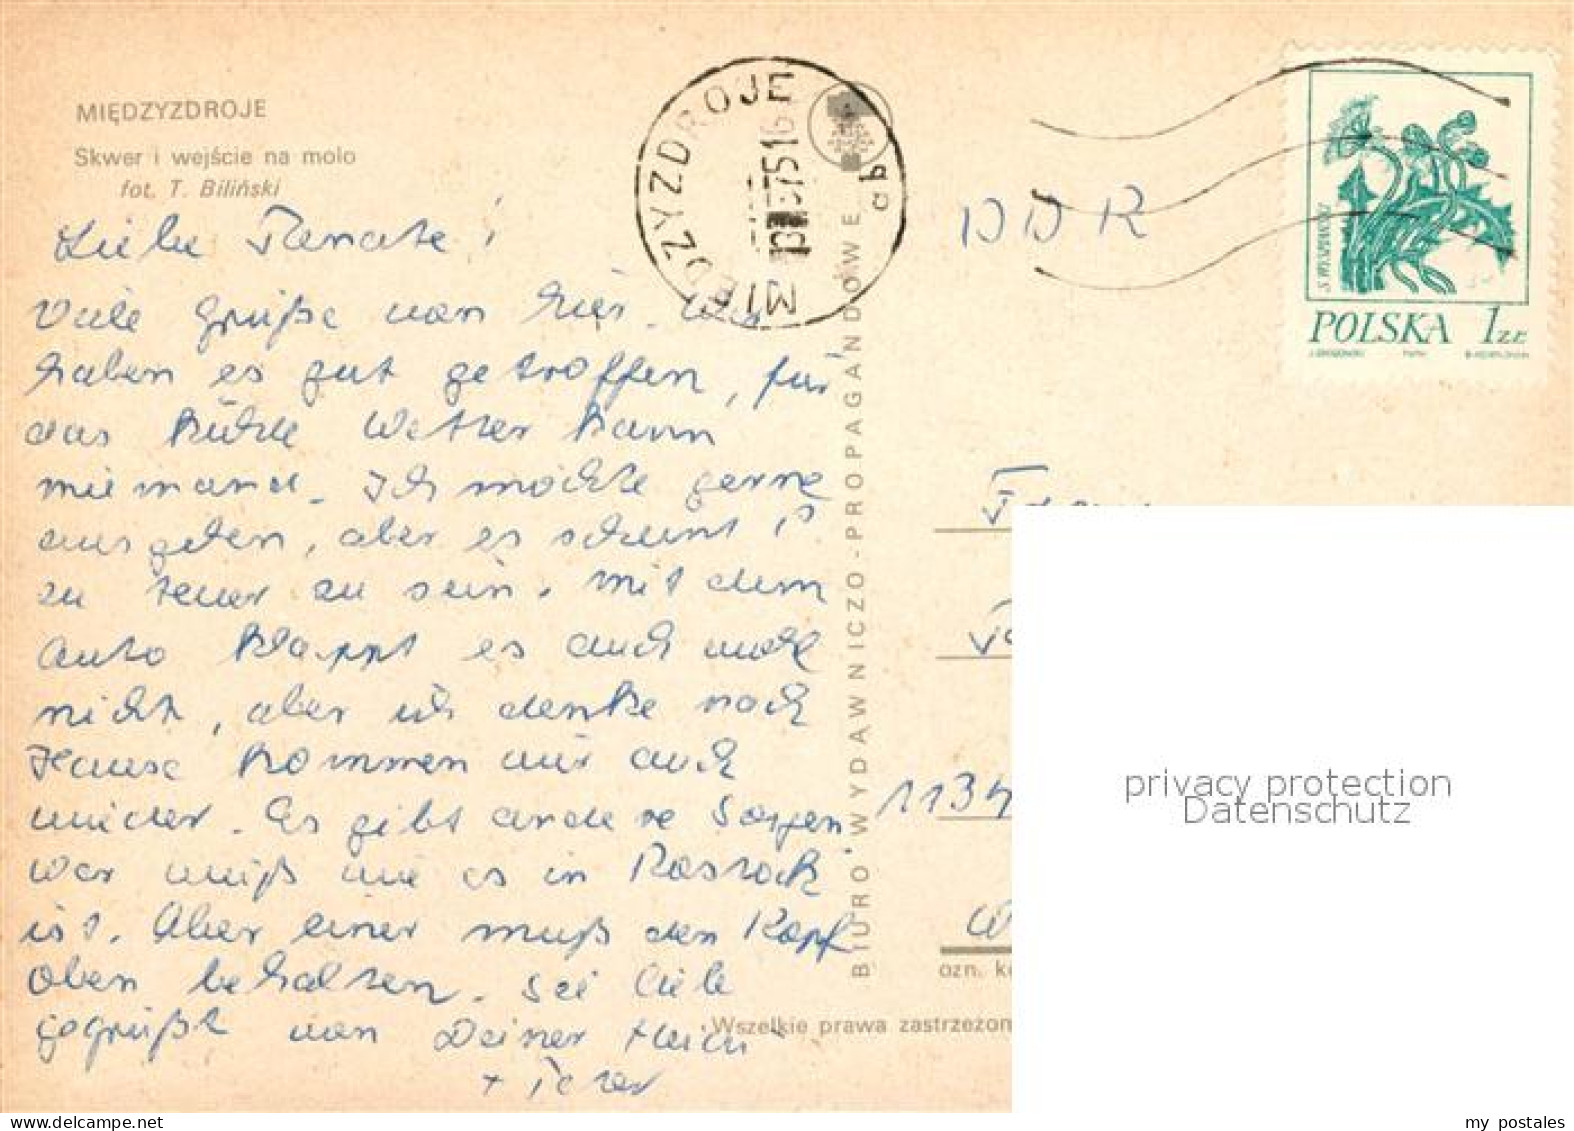 MIĘDZYZDROJE
Skwer i wejście na molo
fot. T. Biliński
MIĘDZYZDROJE
75 16
DDR
S. WYSPIAŃSKI
POLSKA 1 ZŁ
Liebe Renate!
Viele Grüße von hier. Wir
haben es gut getroffen, für
das kühle Wetter kann
niemand. Ich möchte gerne
ausgehen, aber es scheint P.
zu teuer zu sein. Mit dem
Auto klappt es auch wohl
nicht, aber ich denke nach
Hause kommen wir auch
wieder. Es gibt andere Sorgen,
wer weiß wie es in Rostock
ist. Aber einer muß den Kopf
oben behalten. Sei liebe
gegrüßt von Deiner Heidi
+ Peter
BIURO WYDAWNICZO-PROPAGANDOWE
113
ozn. k
Wszelkie prawa zastrzeżon
privacy protection
Datenschutz
my postales